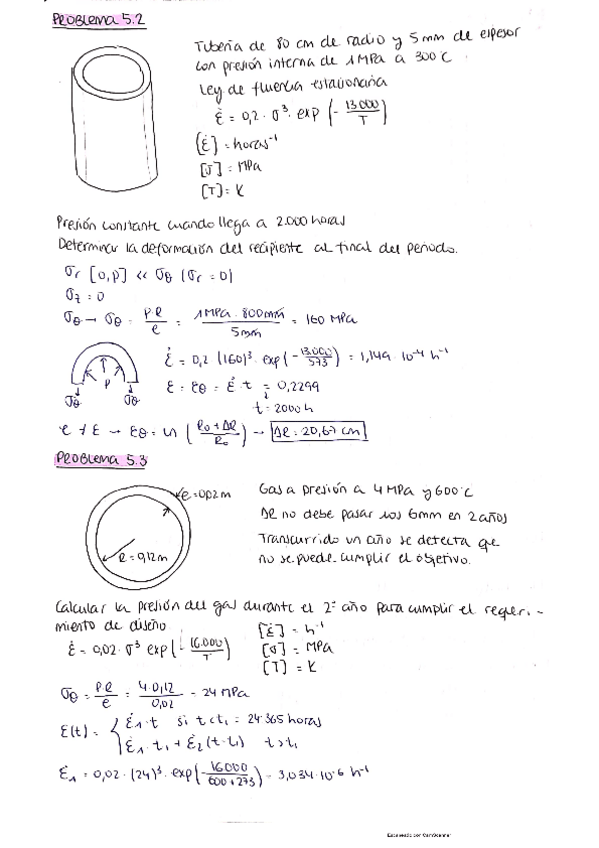 PROBLEMA 5.2
Tubería de 80 cm de radio y 5 mm de espesor
con presión interna de 1 MPa a 300°C
Ley de fluencia estacionaria
ε̇ = 0,2 · σ³ · exp (- 13000/T)
[ε̇] = horas⁻¹
[σ] = MPa
[T] = K
Presión constante cuando llega a 2.000 horas
Determinar la deformación del recipiente al final del periodo.
σr [0,p] << σθ (σr = 0)
σz = 0
σθ → σθ = P·R/e = 1MPa · 800mm/5mm = 160 MPa
ε̇ = 0,2 (160)³ · exp (- 13.000/573) = 1,149 · 10⁻⁴ h⁻¹
P
σθ σθ
ε = εθ = ε̇ · t = 0,2299
t = 2000 h
e ≠ ε → εθ = ln (R₀ + ΔR/R₀) → ΔR = 20,67 cm
PROBLEMA 5.3
e = 0,02 m
R = 0,12 m
Gas a presión a 4 MPa y 600°C
ΔR no debe pasar los 6mm en 2 años
Transcurrido un año se detecta que
no se puede cumplir el objetivo.
Calcular la presión del gas durante el 2º año para cumplir el requeri-
miento de diseño
ε̇ = 0,02 · σ³ exp (- 16.000/T)
[ε̇] = h⁻¹
[σ] = MPa
[T] = K
σθ = PR/e = 4·0,12/0,02 = 24 MPa
ε(t) = { ε̇₁ · t si t < t₁ = 24·365 horas
ε̇₁ · t₁ + ε̇₂ (t - t₁) t > t₁
ε̇₁ = 0,02 · (24)³ · exp (- 16000/600+273) = 3,034 · 10⁻⁶ h⁻¹
Escaneado con CamScanner